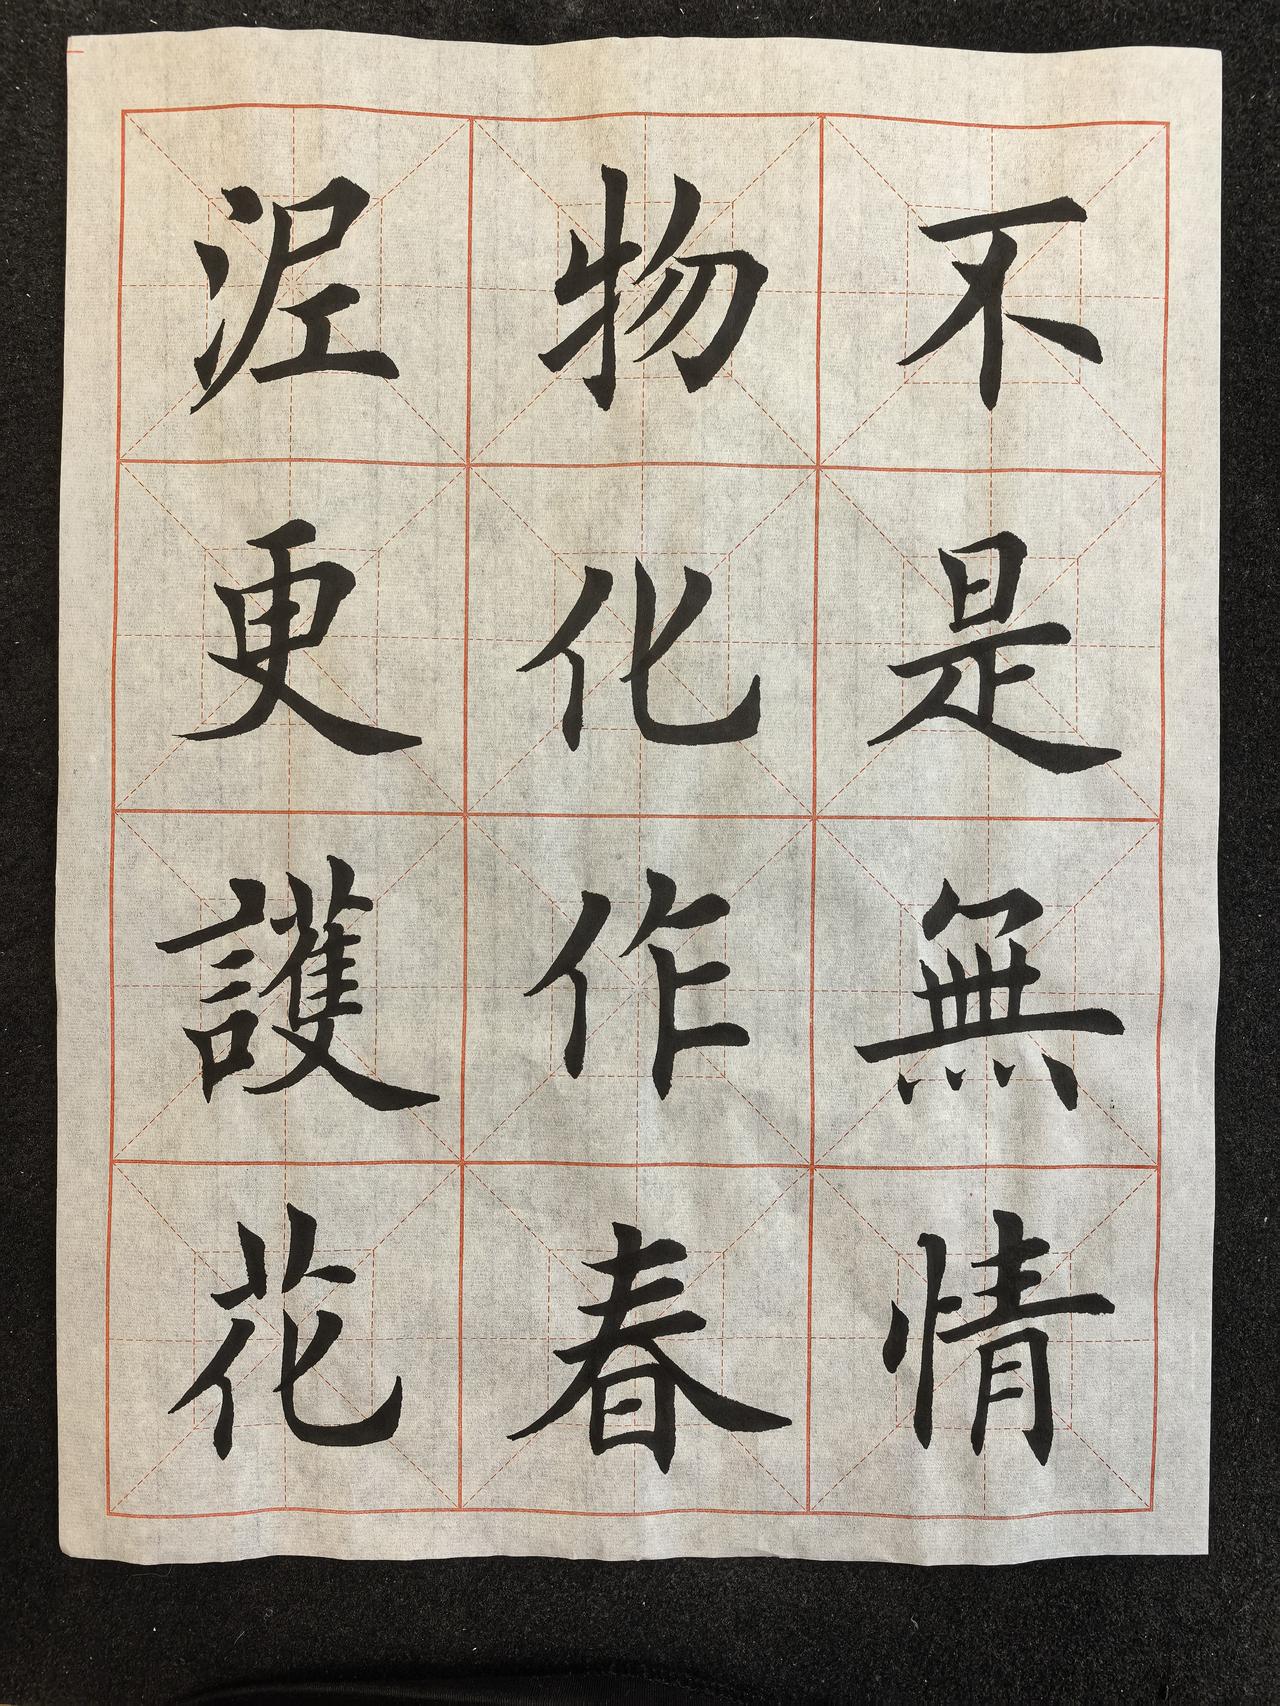 不是無情
物化作春
泥更護花